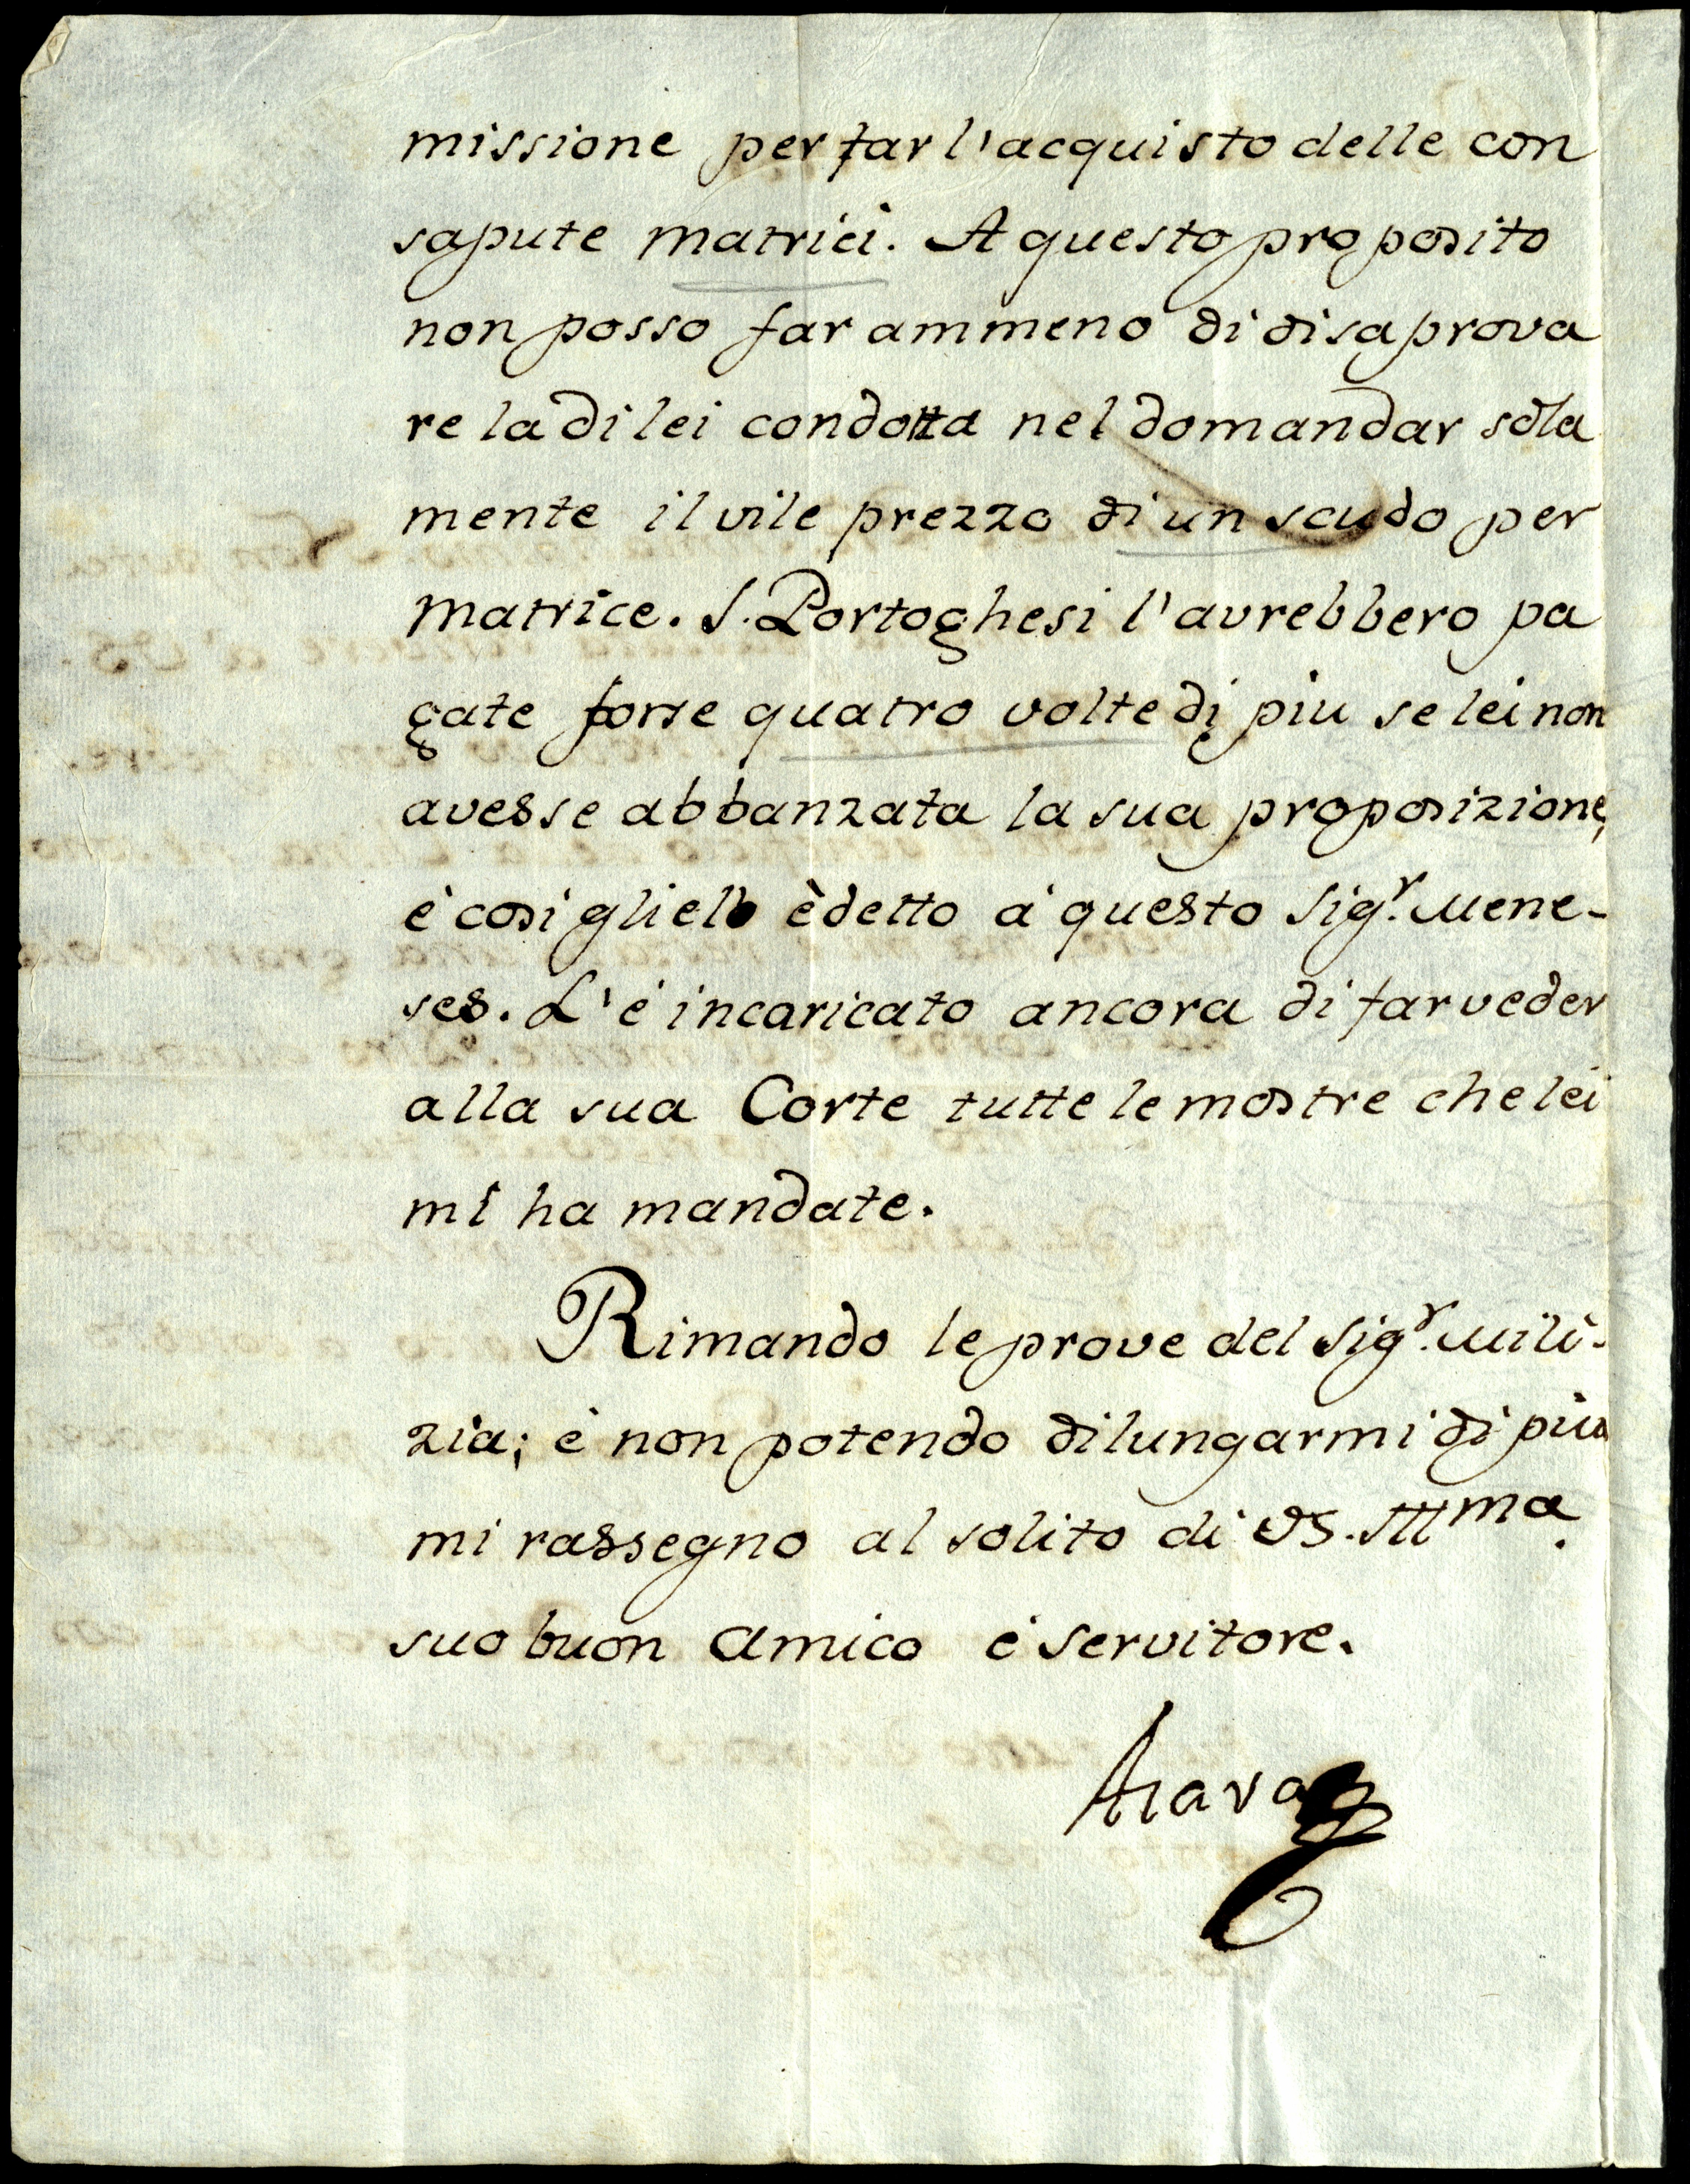 missione per far l'acquisto delle con
sapute matrici. A questo proposito
non posso far ammeno di disaprova
re la di lei condotta nel domandar sola
mente il vile prezzo di un scudo per
matrice. I. Portoghesi l'avrebbero pa
gate forse quatro volte di piu se lei non
avesse abbanzata la sua proposizione,
è cosi glielo è detto a questo Sig.r Mene-
ses. L'è incaricato ancora di far veder
alla sua Corte tutte le mostre che lei
mi ha mandate.
Rimando le prove del Sig.r Mili-
zia; è non potendo dilungarmi di piu
mi rassegno al solito di VS. Illma.
suo buon amico è servitore.